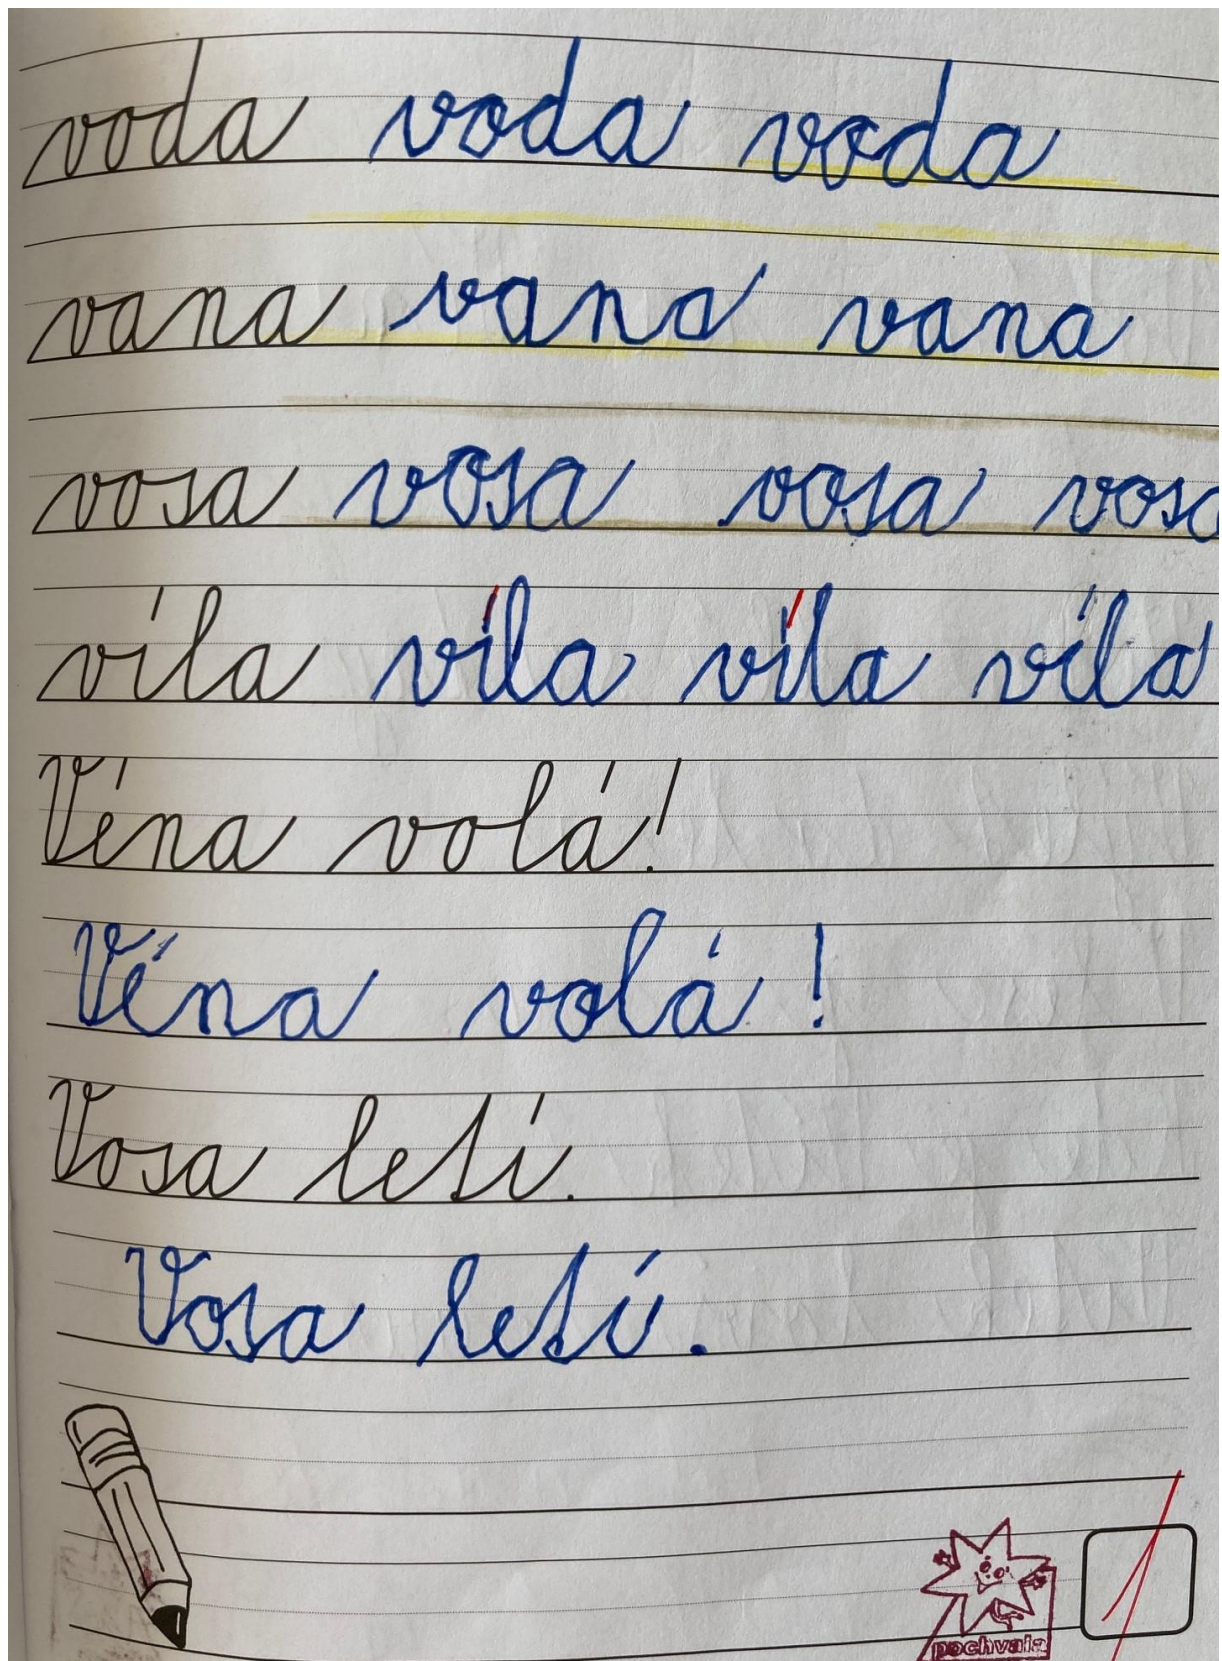 voda voda voda
vana vana vana
vosa vosa vosa vosa
víla víla víla víla
Véna volá!
Véna volá!
Vosa letí.
Vosa letí.
pochvala
1